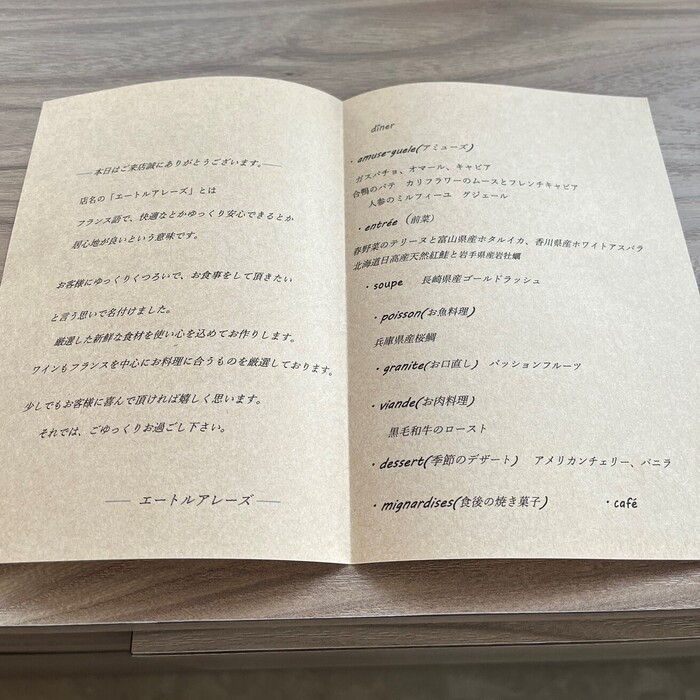 本日はご来店誠にありがとうございます。
店名の「エートルアレーズ」とは
フランス語で、快適なとかゆっくり安心できるとか
居心地が良いという意味です。
お客様にゆっくりくつろいで、お食事をして頂きたい
と言う思いで名付けました。
厳選した新鮮な食材を使い心を込めてお作りします。
ワインもフランスを中心にお料理に合うものを厳選しております。
少しでもお客様に喜んで頂ければ嬉しく思います。
それでは、ごゆっくりお過ごし下さい。
エートルアレーズ
dîner
・amuse-guele(アミューズ)
ガスパチョ、オマール、キャビア
合鴨のパテ カリフラワーのムースとフレンチキャビア
人参のミルフィーユ グジェール
・entrée (前菜)
春野菜のテリーヌと富山県産ホタルイカ、香川県産ホワイトアスパラ
北海道日高産天然紅鮭と岩手県産岩牡蠣
・soupe 長崎県産ゴールドラッシュ
・poisson(お魚料理)
兵庫県産桜鯛
・granite(お口直し) パッションフルーツ
・viande(お肉料理)
黒毛和牛のロースト
・dessert(季節のデザート) アメリカンチェリー、バニラ
・mignardises(食後の焼き菓子) ・café